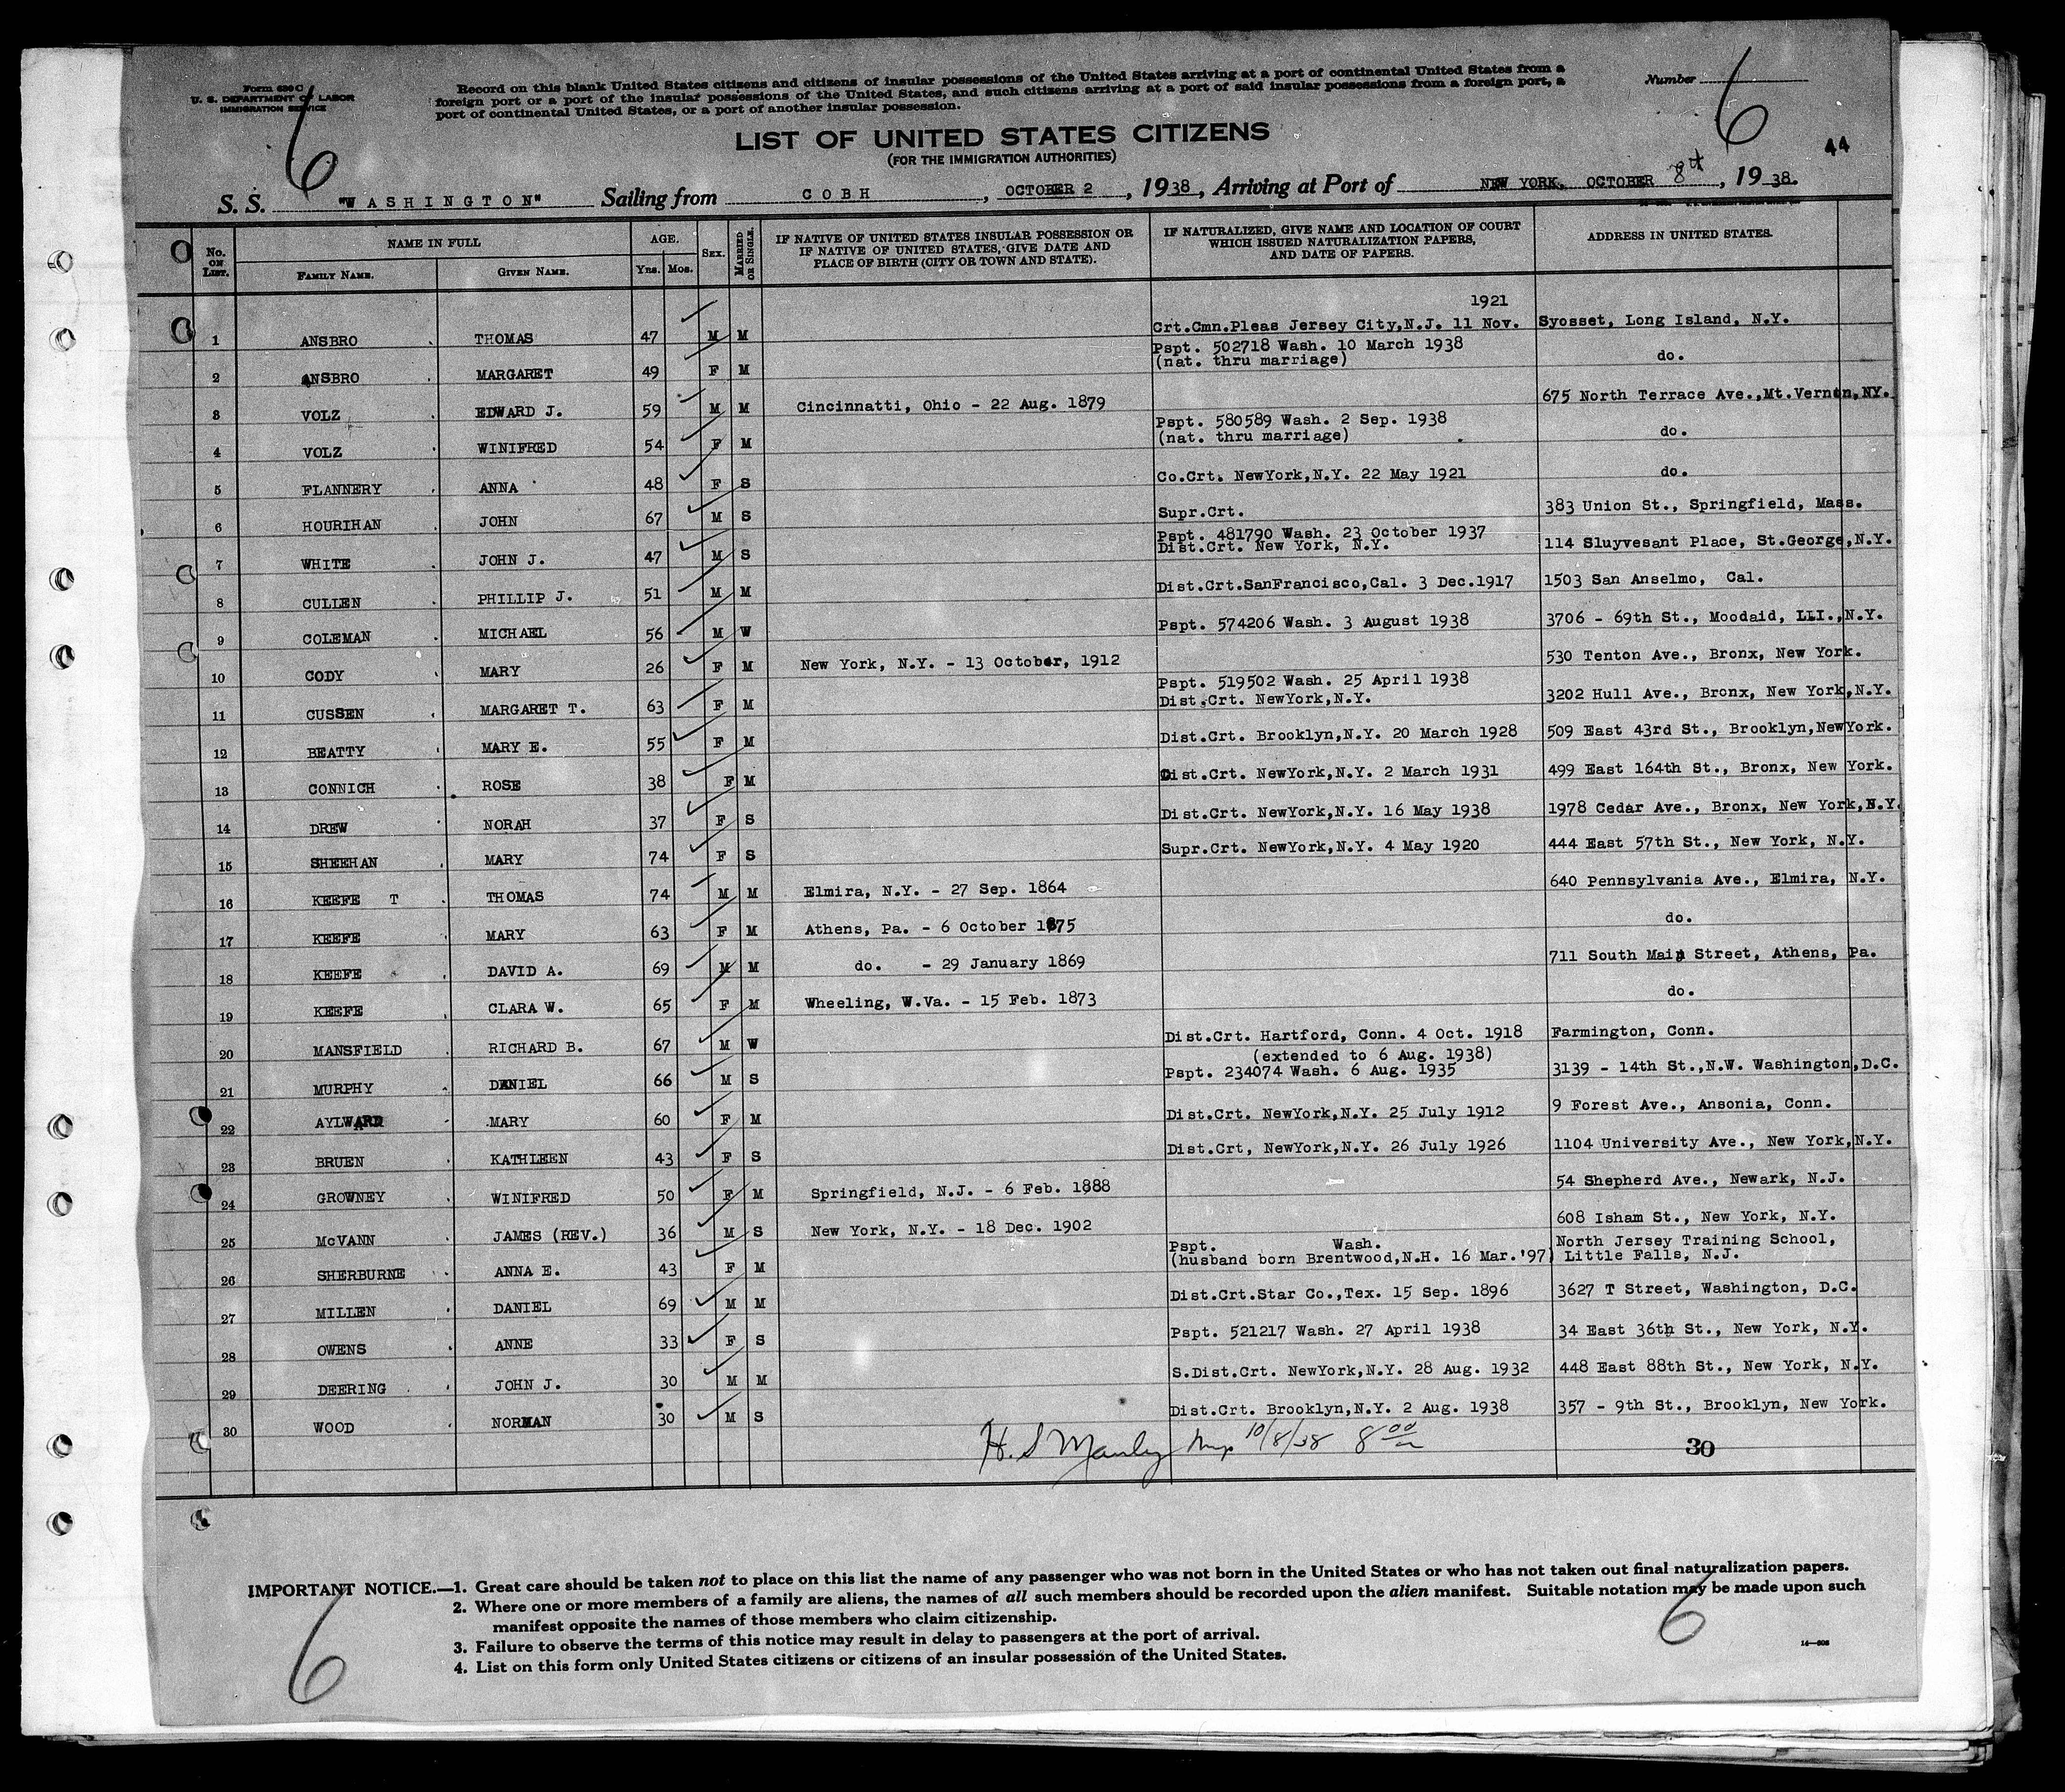 Form 630 C
U. S. DEPARTMENT OF LABOR
IMMIGRATION SERVICE
Record on this blank United States citizens and citizens of insular possessions of the United States arriving at a port of continental United States from a
foreign port or a port of the insular possessions of the United States, and such citizens arriving at a port of said insular possessions from a foreign port, a
port of continental United States, or a port of another insular possession.
Number
6
6
44
LIST OF UNITED STATES CITIZENS
(FOR THE IMMIGRATION AUTHORITIES)
S. S. "WASHINGTON" Sailing from COBH, OCTOBER 2, 1938, Arriving at Port of NEW YORK, OCTOBER 8th, 1938.
No. ON LIST. NAME IN FULL FAMILY NAME. GIVEN NAME. AGE. Yrs. Mos. SEX. MARRIED OR SINGLE. IF NATIVE OF UNITED STATES INSULAR POSSESSION OR IF NATIVE OF UNITED STATES, GIVE DATE AND PLACE OF BIRTH (CITY OR TOWN AND STATE). IF NATURALIZED, GIVE NAME AND LOCATION OF COURT WHICH ISSUED NATURALIZATION PAPERS, AND DATE OF PAPERS. ADDRESS IN UNITED STATES.
1921
1 ANSBRO THOMAS 47 M M Crt.Cmn.Pleas Jersey City,N.J. 11 Nov. Syosset, Long Island, N.Y.
2 ANSBRO MARGARET 49 F M Pspt. 502718 Wash. 10 March 1938 (nat. thru marriage) do.
3 VOLZ EDWARD J. 59 M M Cincinnatti, Ohio - 22 Aug. 1879 675 North Terrace Ave.,Mt.Vernon,NY.
4 VOLZ WINIFRED 54 F M Pspt. 580589 Wash. 2 Sep. 1938 (nat. thru marriage) do.
5 FLANNERY ANNA 48 F S Co.Crt. NewYork,N.Y. 22 May 1921 do.
6 HOURIHAN JOHN 67 M S Supr.Crt. 383 Union St., Springfield, Mass.
7 WHITE JOHN J. 47 M S Pspt. 481790 Wash. 23 October 1937 Dist.Crt. New York, N.Y. 114 Sluyvesant Place, St.George,N.Y.
8 CULLEN PHILLIP J. 51 M M Dist.Crt.SanFrancisco,Cal. 3 Dec.1917 1503 San Anselmo, Cal.
9 COLEMAN MICHAEL 56 M W Pspt. 574206 Wash. 3 August 1938 3706 - 69th St., Moodaid, LLI.,N.Y.
10 CODY MARY 26 F M New York, N.Y. - 13 October, 1912 530 Tenton Ave., Bronx, New York.
11 CUSSEN MARGARET T. 63 F M Pspt. 519502 Wash. 25 April 1938 Dist.Crt. NewYork,N.Y. 3202 Hull Ave., Bronx, New York,N.Y.
12 BEATTY MARY E. 55 F M Dist.Crt. Brooklyn,N.Y. 20 March 1928 509 East 43rd St., Brooklyn,NewYork.
13 CONNICH ROSE 38 F M Dist.Crt. NewYork,N.Y. 2 March 1931 499 East 164th St., Bronx, New York.
14 DREW NORAH 37 F S Dist.Crt. NewYork,N.Y. 16 May 1938 1978 Cedar Ave., Bronx, New York,N.Y.
15 SHEEHAN MARY 74 F S Supr.Crt. NewYork,N.Y. 4 May 1920 444 East 57th St., New York, N.Y.
16 KEEFE T THOMAS 74 M M Elmira, N.Y. - 27 Sep. 1864 640 Pennsylvania Ave., Elmira, N.Y.
17 KEEFE MARY 63 F M Athens, Pa. - 6 October 1875 do.
18 KEEFE DAVID A. 69 M M do. - 29 January 1869 711 South Main Street, Athens, Pa.
19 KEEFE CLARA W. 65 F M Wheeling, W.Va. - 15 Feb. 1873 do.
20 MANSFIELD RICHARD B. 67 M W Dist.Crt. Hartford, Conn. 4 Oct. 1918 Farmington, Conn.
21 MURPHY DANIEL 66 M S (extended to 6 Aug. 1938) Pspt. 234074 Wash. 6 Aug. 1935 3139 - 14th St.,N.W. Washington,D.C.
22 AYLWARD MARY 60 F M Dist.Crt. NewYork,N.Y. 25 July 1912 9 Forest Ave., Ansonia, Conn.
23 BRUEN KATHLEEN 43 F S Dist.Crt, NewYork,N.Y. 26 July 1926 1104 University Ave., New York,N.Y.
24 GROWNEY WINIFRED 50 F M Springfield, N.J. - 6 Feb. 1888 54 Shepherd Ave., Newark, N.J.
25 McVANN JAMES (REV.) 36 M S New York, N.Y. - 18 Dec. 1902 608 Isham St., New York, N.Y.
26 SHERBURNE ANNA E. 43 F M Pspt. Wash. (husband born Brentwood,N.H. 16 Mar.'97) North Jersey Training School, Little Falls, N.J.
27 MILLEN DANIEL 69 M M Dist.Crt.Star Co.,Tex. 15 Sep. 1896 3627 T Street, Washington, D.C.
28 OWENS ANNE 33 F S Pspt. 521217 Wash. 27 April 1938 34 East 36th St., New York, N.Y.
29 DEERING JOHN J. 30 M M S.Dist.Crt. NewYork,N.Y. 28 Aug. 1932 448 East 88th St., New York, N.Y.
30 WOOD NORMAN 30 M S Dist.Crt. Brooklyn,N.Y. 2 Aug. 1938 357 - 9th St., Brooklyn, New York.
H. S Manly Insp 10/8/38 8 00
30
IMPORTANT NOTICE.—1. Great care should be taken not to place on this list the name of any passenger who was not born in the United States or who has not taken out final naturalization papers.
2. Where one or more members of a family are aliens, the names of all such members should be recorded upon the alien manifest. Suitable notation may be made upon such
manifest opposite the names of those members who claim citizenship.
3. Failure to observe the terms of this notice may result in delay to passengers at the port of arrival.
4. List on this form only United States citizens or citizens of an insular possession of the United States.
6
6